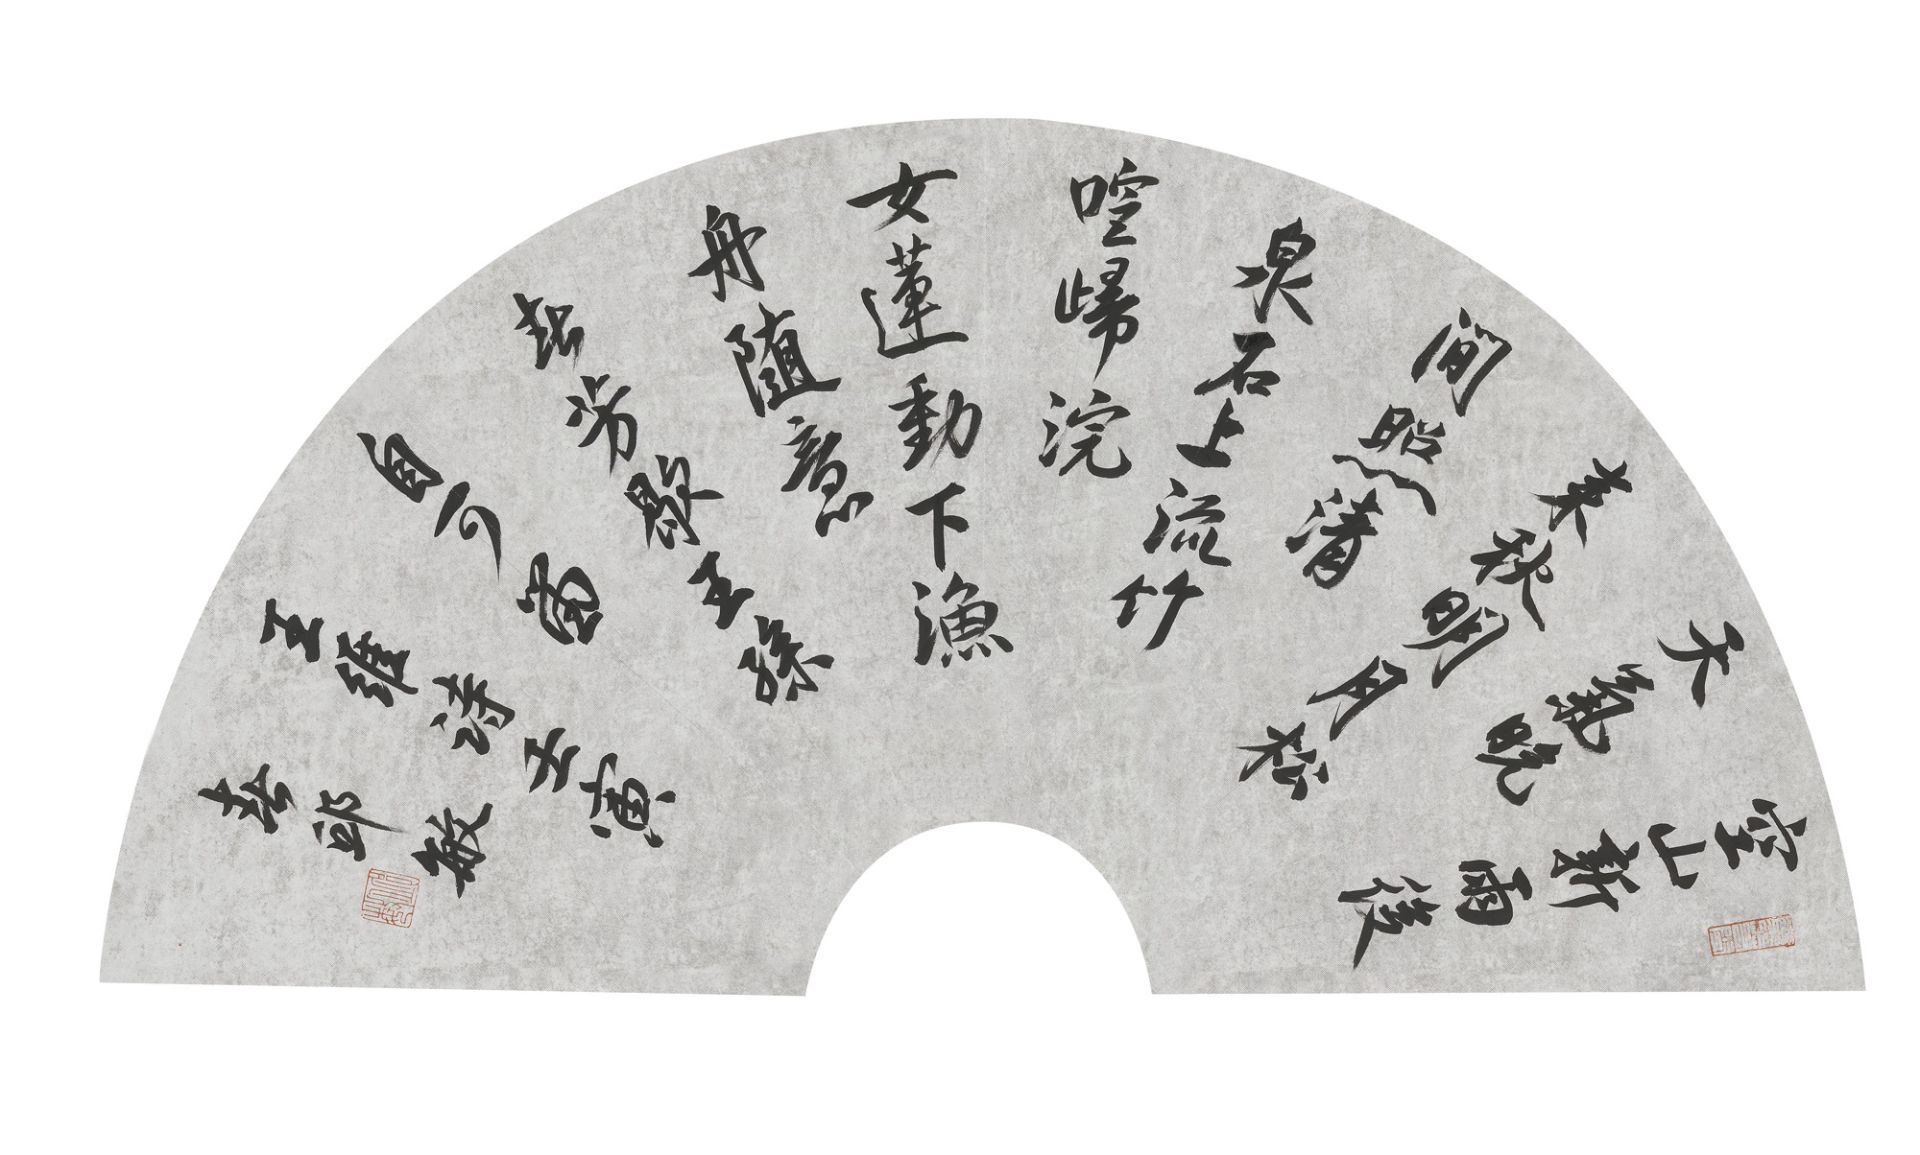 空山新雨後
天氣晚
来秋明月松
间照清
泉石上流竹
喧歸浣
女蓮動下漁
舟随意
春芳歇王孫
自可留
王維詩壬寅
春邱敏